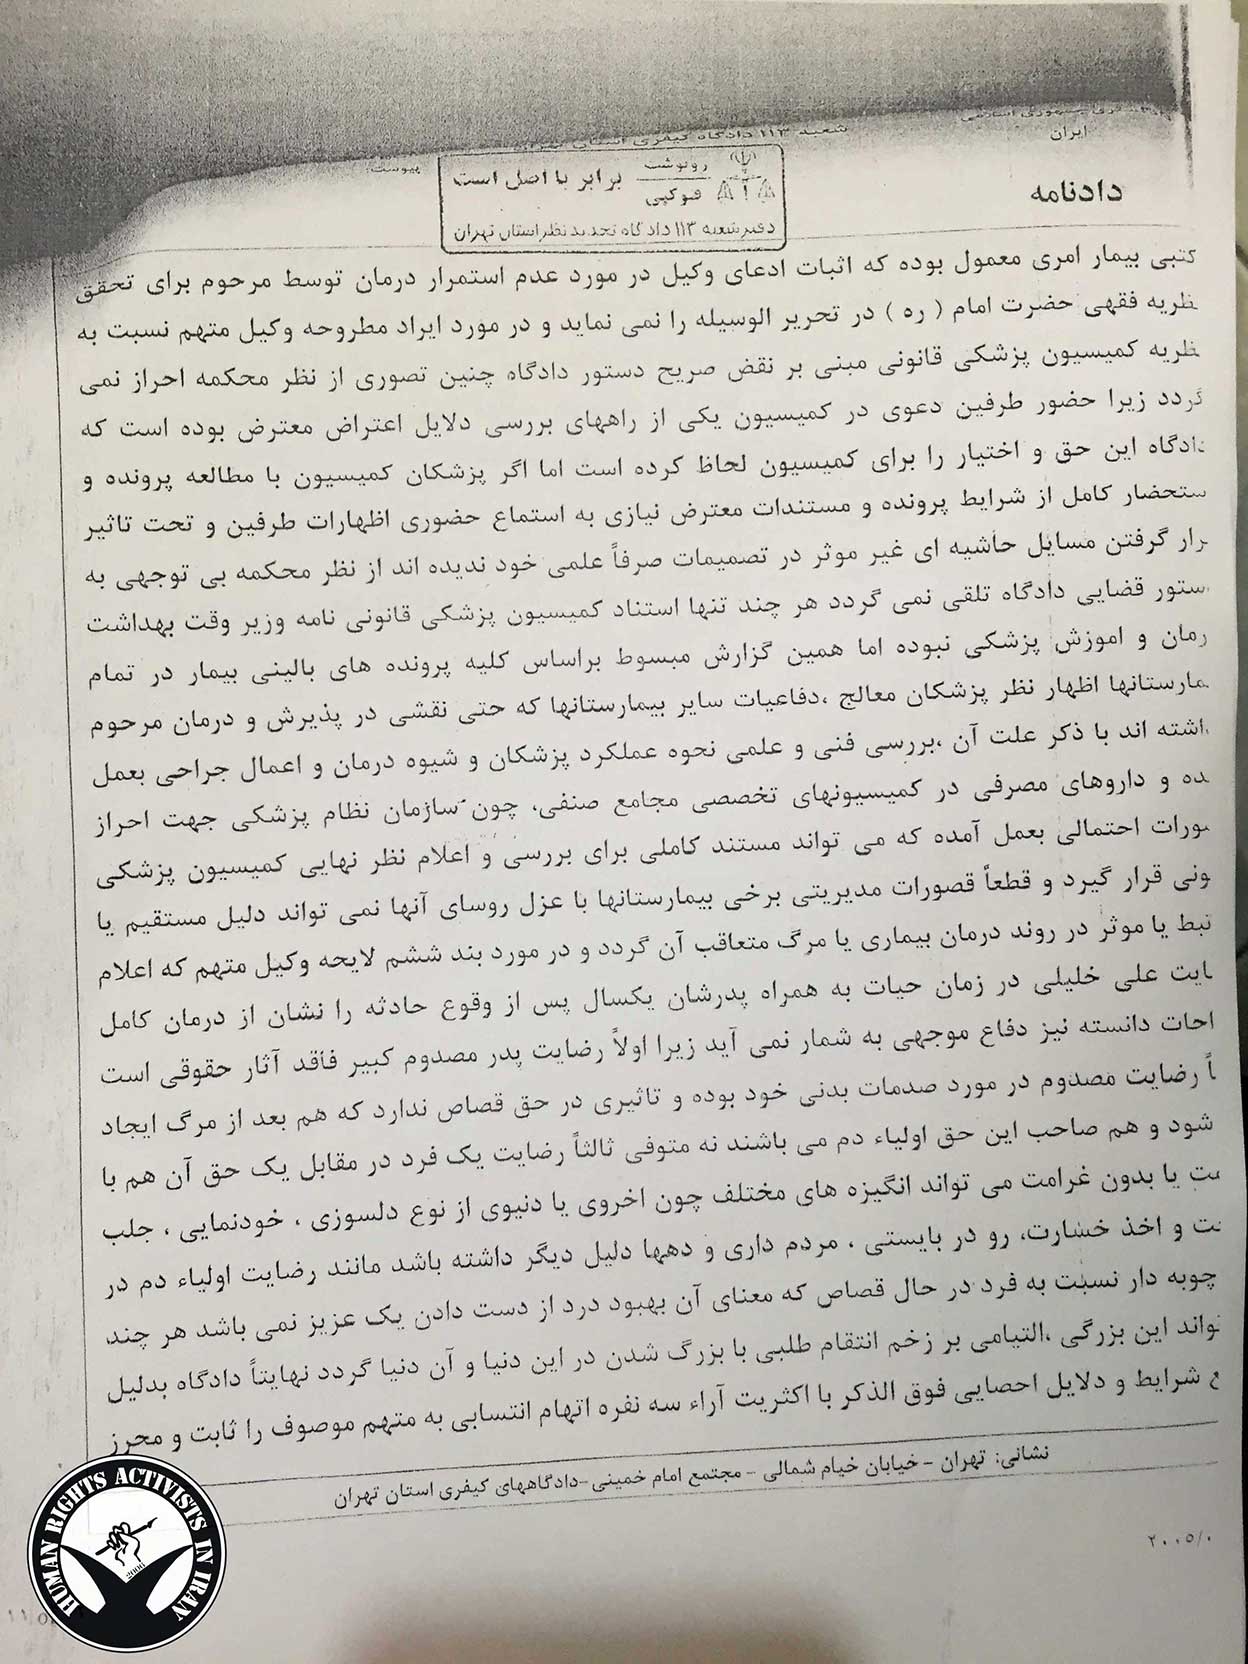 ایران
شعبه ۱۱۳ دادگاه کیفری استان تهران
پیوست:
رونوشت
فتوکپی
برابر با اصل است
دفتر شعبه ۱۱۳ دادگاه تجدید نظر استان تهران
دادنامه
کتبی بیمار امری معمول بوده که اثبات ادعای وکیل در مورد عدم استمرار درمان توسط مرحوم برای تحقق
ظریه فقهی حضرت امام ( ره ) در تحریر الوسیله را نمی نماید و در مورد ایراد مطروحه وکیل متهم نسبت به
ظریه کمیسیون پزشکی قانونی مبنی بر نقض صریح دستور دادگاه چنین تصوری از نظر محکمه احراز نمی
گردد زیرا حضور طرفین دعوی در کمیسیون یکی از راههای بررسی دلایل اعتراض معترض بوده است که
دادگاه این حق و اختیار را برای کمیسیون لحاظ کرده است اما اگر پزشکان کمیسیون با مطالعه پرونده و
ستحضار کامل از شرایط پرونده و مستندات معترض نیازی به استماع حضوری اظهارات طرفین و تحت تاثیر
رار گرفتن مسایل حاشیه ای غیر موثر در تصمیمات صرفاً علمی خود ندیده اند از نظر محکمه بی توجهی به
ستور قضایی دادگاه تلقی نمی گردد هر چند تنها استناد کمیسیون پزشکی قانونی نامه وزیر وقت بهداشت
رمان و اموزش پزشکی نبوده اما همین گزارش مبسوط براساس کلیه پرونده های بالینی بیمار در تمام
مارستانها اظهار نظر پزشکان معالج ،دفاعیات سایر بیمارستانها که حتی نقشی در پذیرش و درمان مرحوم
داشته اند با ذکر علت آن ،بررسی فنی و علمی نحوه عملکرد پزشکان و شیوه درمان و اعمال جراحی بعمل
ده و داروهای مصرفی در کمیسیونهای تخصصی مجامع صنفی، چون سازمان نظام پزشکی جهت احراز
صورات احتمالی بعمل آمده که می تواند مستند کاملی برای بررسی و اعلام نظر نهایی کمیسیون پزشکی
ونی قرار گیرد و قطعاً قصورات مدیریتی برخی بیمارستانها با عزل روسای آنها نمی تواند دلیل مستقیم یا
تبط یا موثر در روند درمان بیماری یا مرگ متعاقب آن گردد و در مورد بند ششم لایحه وکیل متهم که اعلام
ایت علی خلیلی در زمان حیات به همراه پدرشان یکسال پس از وقوع حادثه را نشان از درمان کامل
احات دانسته نیز دفاع موجهی به شمار نمی آید زیرا اولاً رضایت پدر مصدوم کبیر فاقد آثار حقوقی است
اً رضایت مصدوم در مورد صدمات بدنی خود بوده و تاثیری در حق قصاص ندارد که هم بعد از مرگ ایجاد
شود و هم صاحب این حق اولیاء دم می باشند نه متوفی ثالثاً رضایت یک فرد در مقابل یک حق آن هم با
مت یا بدون غرامت می تواند انگیزه های مختلف چون اخروی یا دنیوی از نوع دلسوزی ، خودنمایی ، جلب
ت و اخذ خسارت، رو در بایستی ، مردم داری و دهها دلیل دیگر داشته باشد مانند رضایت اولیاء دم در
چوبه دار نسبت به فرد در حال قصاص که معنای آن بهبود درد از دست دادن یک عزیز نمی باشد هر چند
تواند این بزرگی ،التیامی بر زخم انتقام طلبی با بزرگ شدن در این دنیا و آن دنیا گردد نهایتاً دادگاه بدلیل
ع شرایط و دلایل احصایی فوق الذکر با اکثریت آراء سه نفره اتهام انتسابی به متهم موصوف را ثابت و محرز
نشانی: تهران - خیابان خیام شمالی - مجتمع امام خمینی-دادگاههای کیفری استان تهران
۲۰۰۵/۰
HUMAN RIGHTS ACTIVISTS IN IRAN
2006